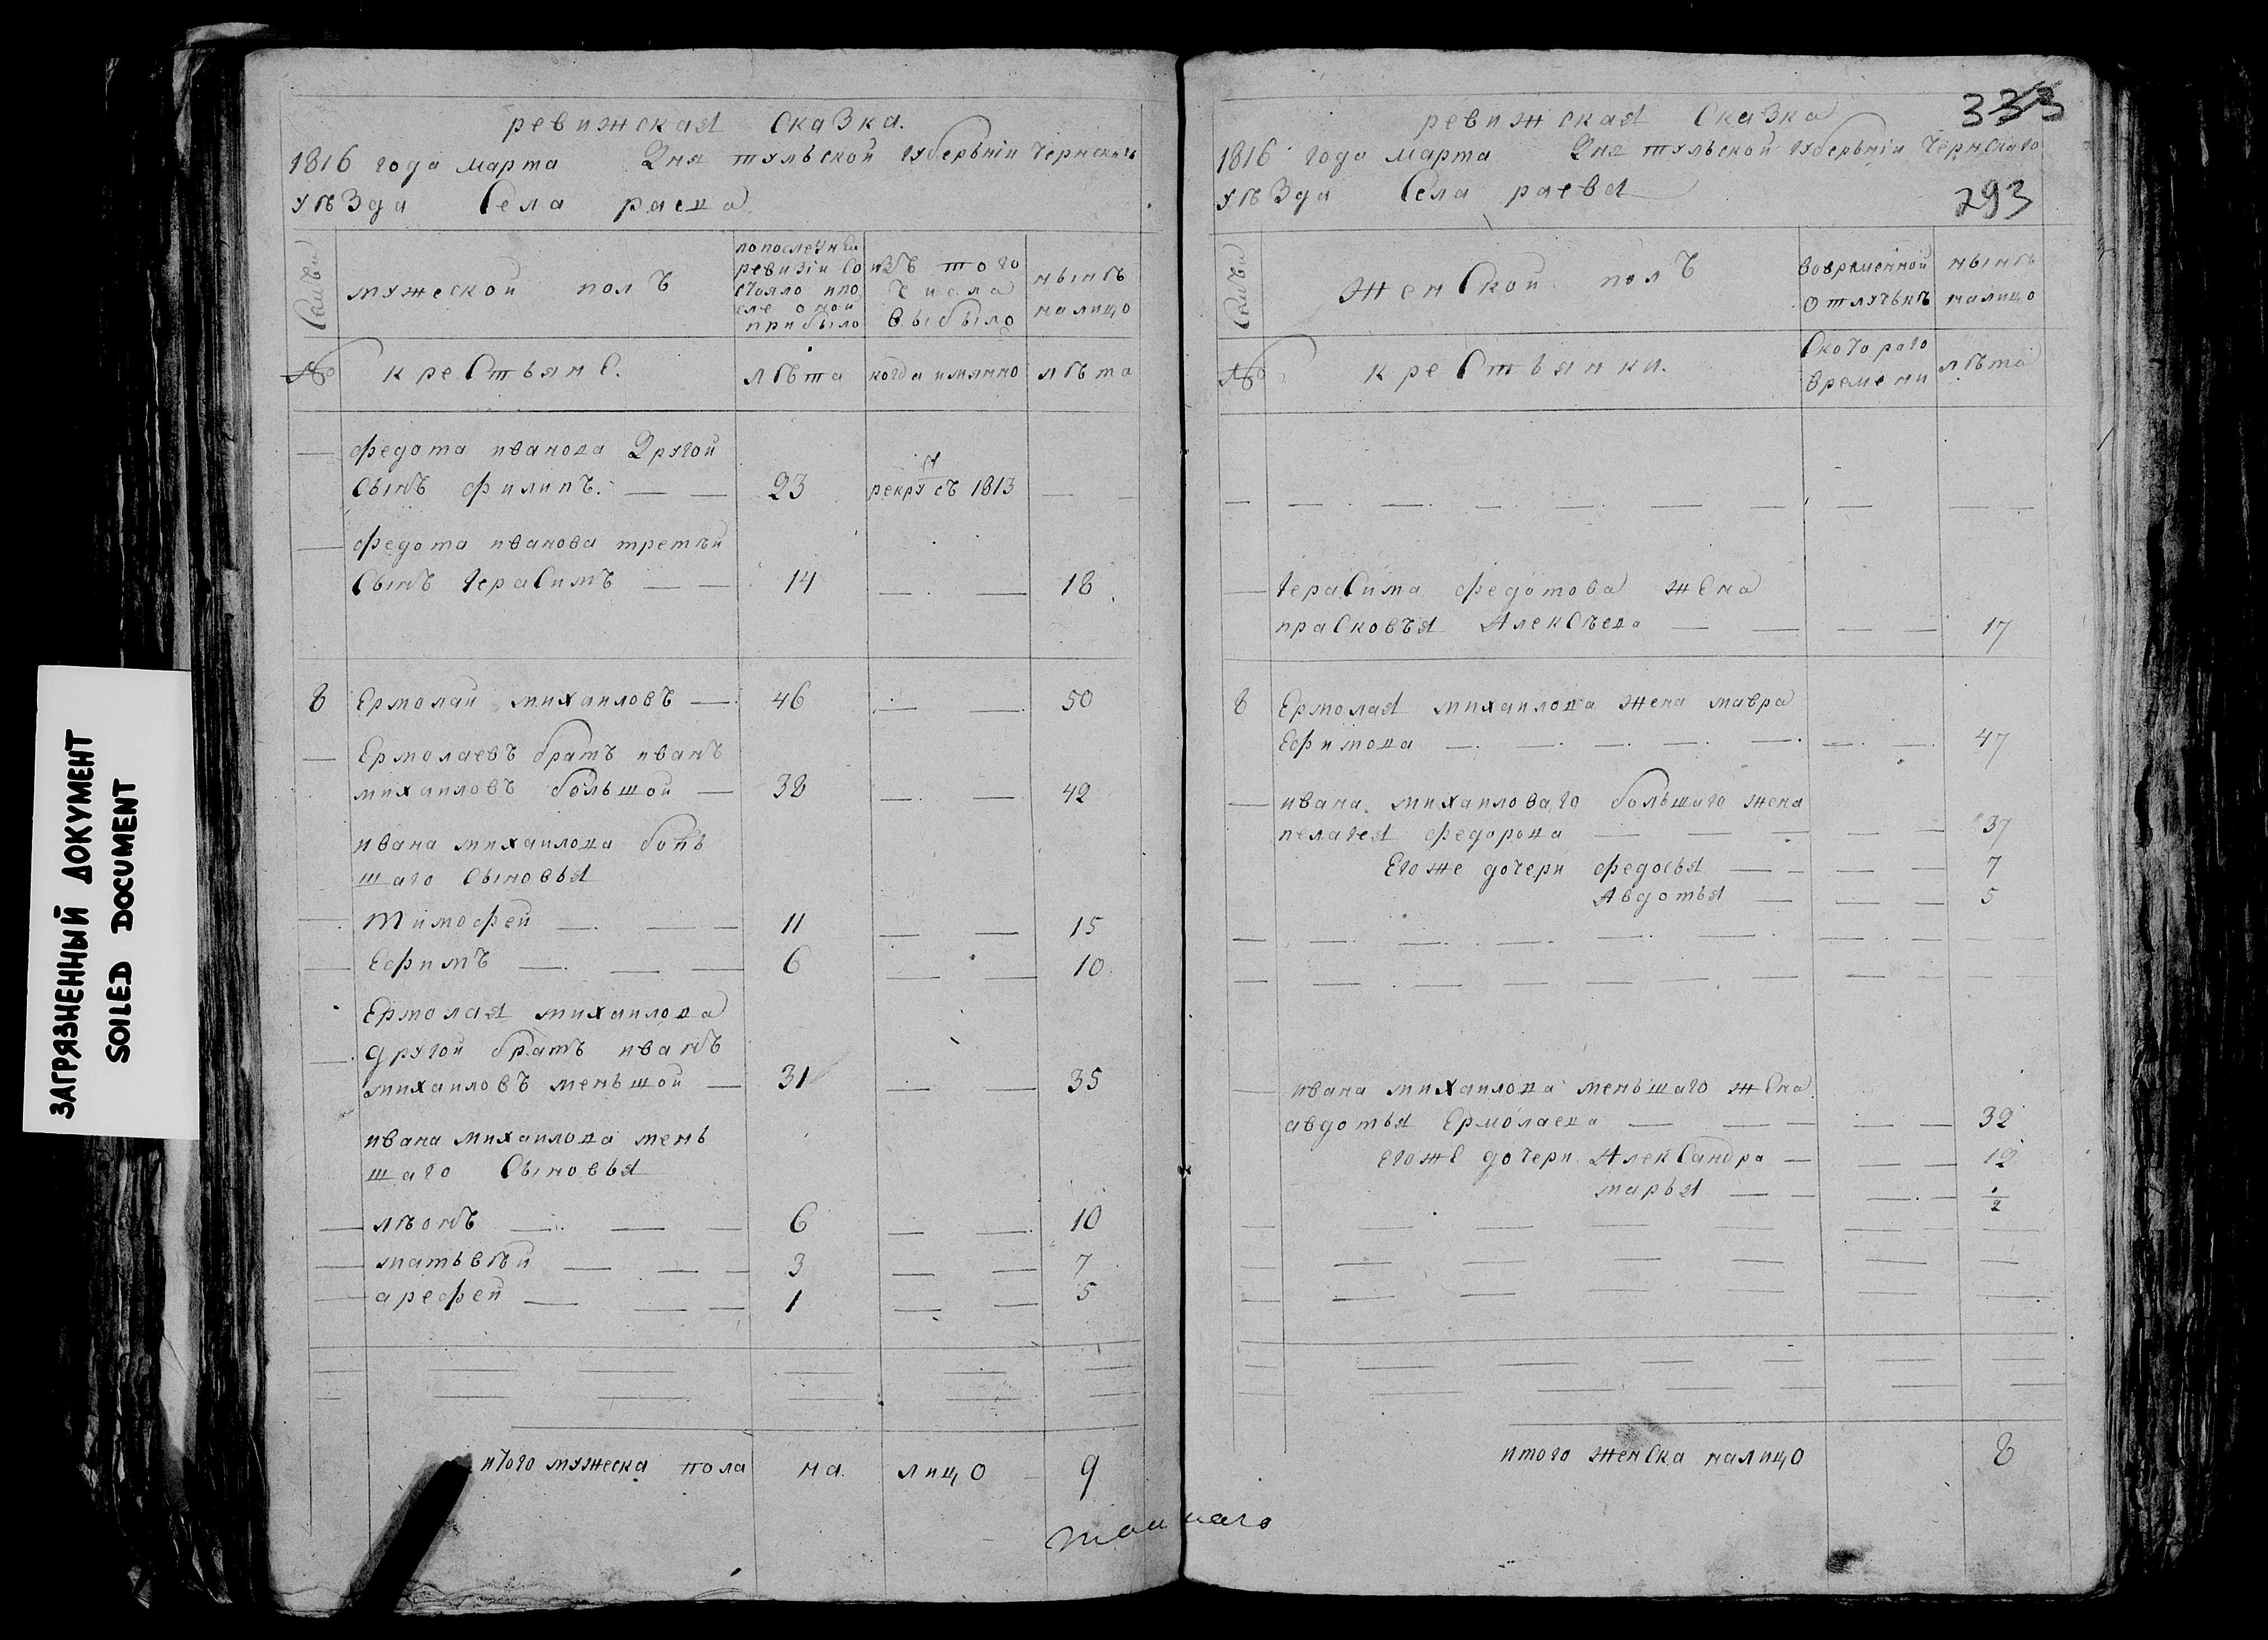 ЗАГРЯЗНЕННЫЙ ДОКУМЕНТ
SOILED DOCUMENT
ревижская Сказка.
1816 года марта Дня тульской губернiи Чернскаго
уѣзда Села раева
Семьи
мужеской полъ
попоследней
ревизiи Со
стояло ипо
сле оной
прибыло
изъ того
числа
выбыло
нынѣ
налицо
№
крестьяне.
лѣта
когда имянно
лѣта
федота иванова Другой
Сынъ филипъ. 23 рекрутъ съ 1813
федота иванова третьи
Сынъ герасимъ 14 18
8 Ермолай михаиловъ 46 50
Ермолаевъ братъ иванъ
михаиловъ большой 38 42
ивана михаилова боль
шаго Сыновья
Тимофей 11 15
Ефимъ 6 10
Ермолая михаилова
другой братъ иванъ
михаиловъ меньшой 31 35
ивана михаилова мень
шаго Сыновья
лѣонъ 6 10
матьвѣй 3 7
арефей 1 5
итого мужеска пола на лицо 9
333
ревижская Сказка
1816 года марта Дня тульской губернiи Чернскаго
уѣзда Села раева
293
Семьи
Женской полъ
вовременной
отлучкѣ
нынѣ
налицо
№
крестьянки.
Скоторого
времени
лѣта
герасима федотова жена
прасковья Алексѣева 17
8 Ермолая михаилова жена мавра
Ефимова 47
ивана михаиловаго большаго жена
пелагея федорова 37
Егоже дочери федосья 7
Авдотья 5
ивана михаилова меньшаго жена
авдотья Ермолаева 32
егоже дочери Александра 12
марья 1/2
итого женска налицо 8